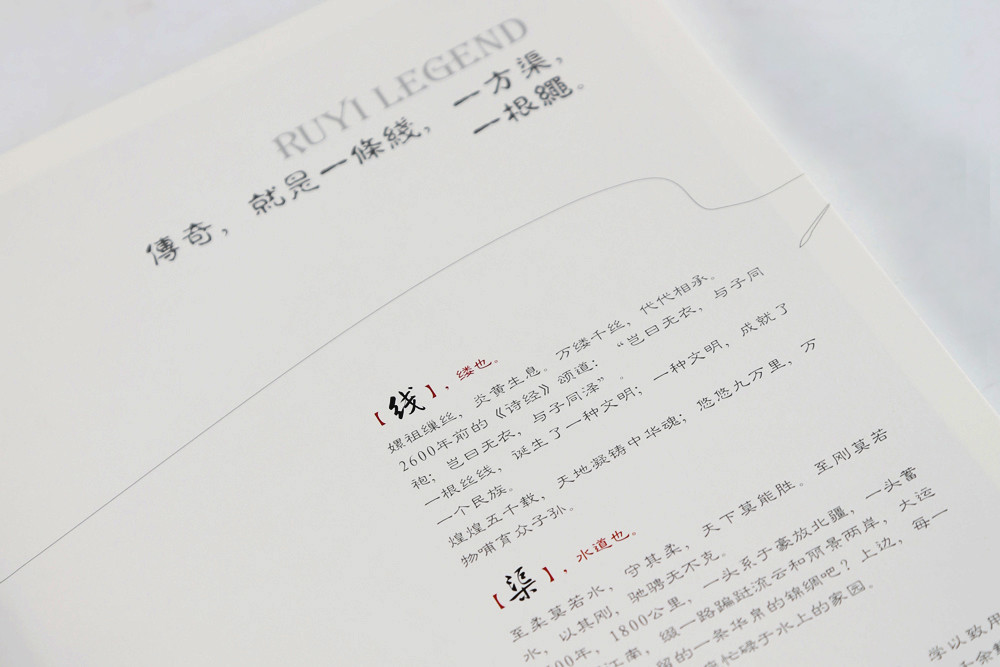 RUYI LEGEND
傳奇，就是一條綫，一方渠，
一根繩。
【线】，缕也。
嫘祖缫丝，炎黄生息。万缕千丝，代代相承。
2600年前的《诗经》颂道：“岂曰无衣，与子同
袍；岂曰无衣，与子同泽”。
一根丝线，诞生了一种文明；一种文明，成就了
一个民族。
煌煌五千载，天地凝铸中华魂；悠悠九万里，万
物哺育众子孙。
【渠】，水道也。
至柔莫若水，守其柔，天下莫能胜。至刚莫若
水，以其刚，驰骋无不克。
00年，1800公里，一头系于豪放北疆，一头蓄
江南，缀一路蹁跹流云和丽景两岸，大运
留的一条华帛的锦绸吧？上边，每一
忙碌于水上的家园。
学以致用